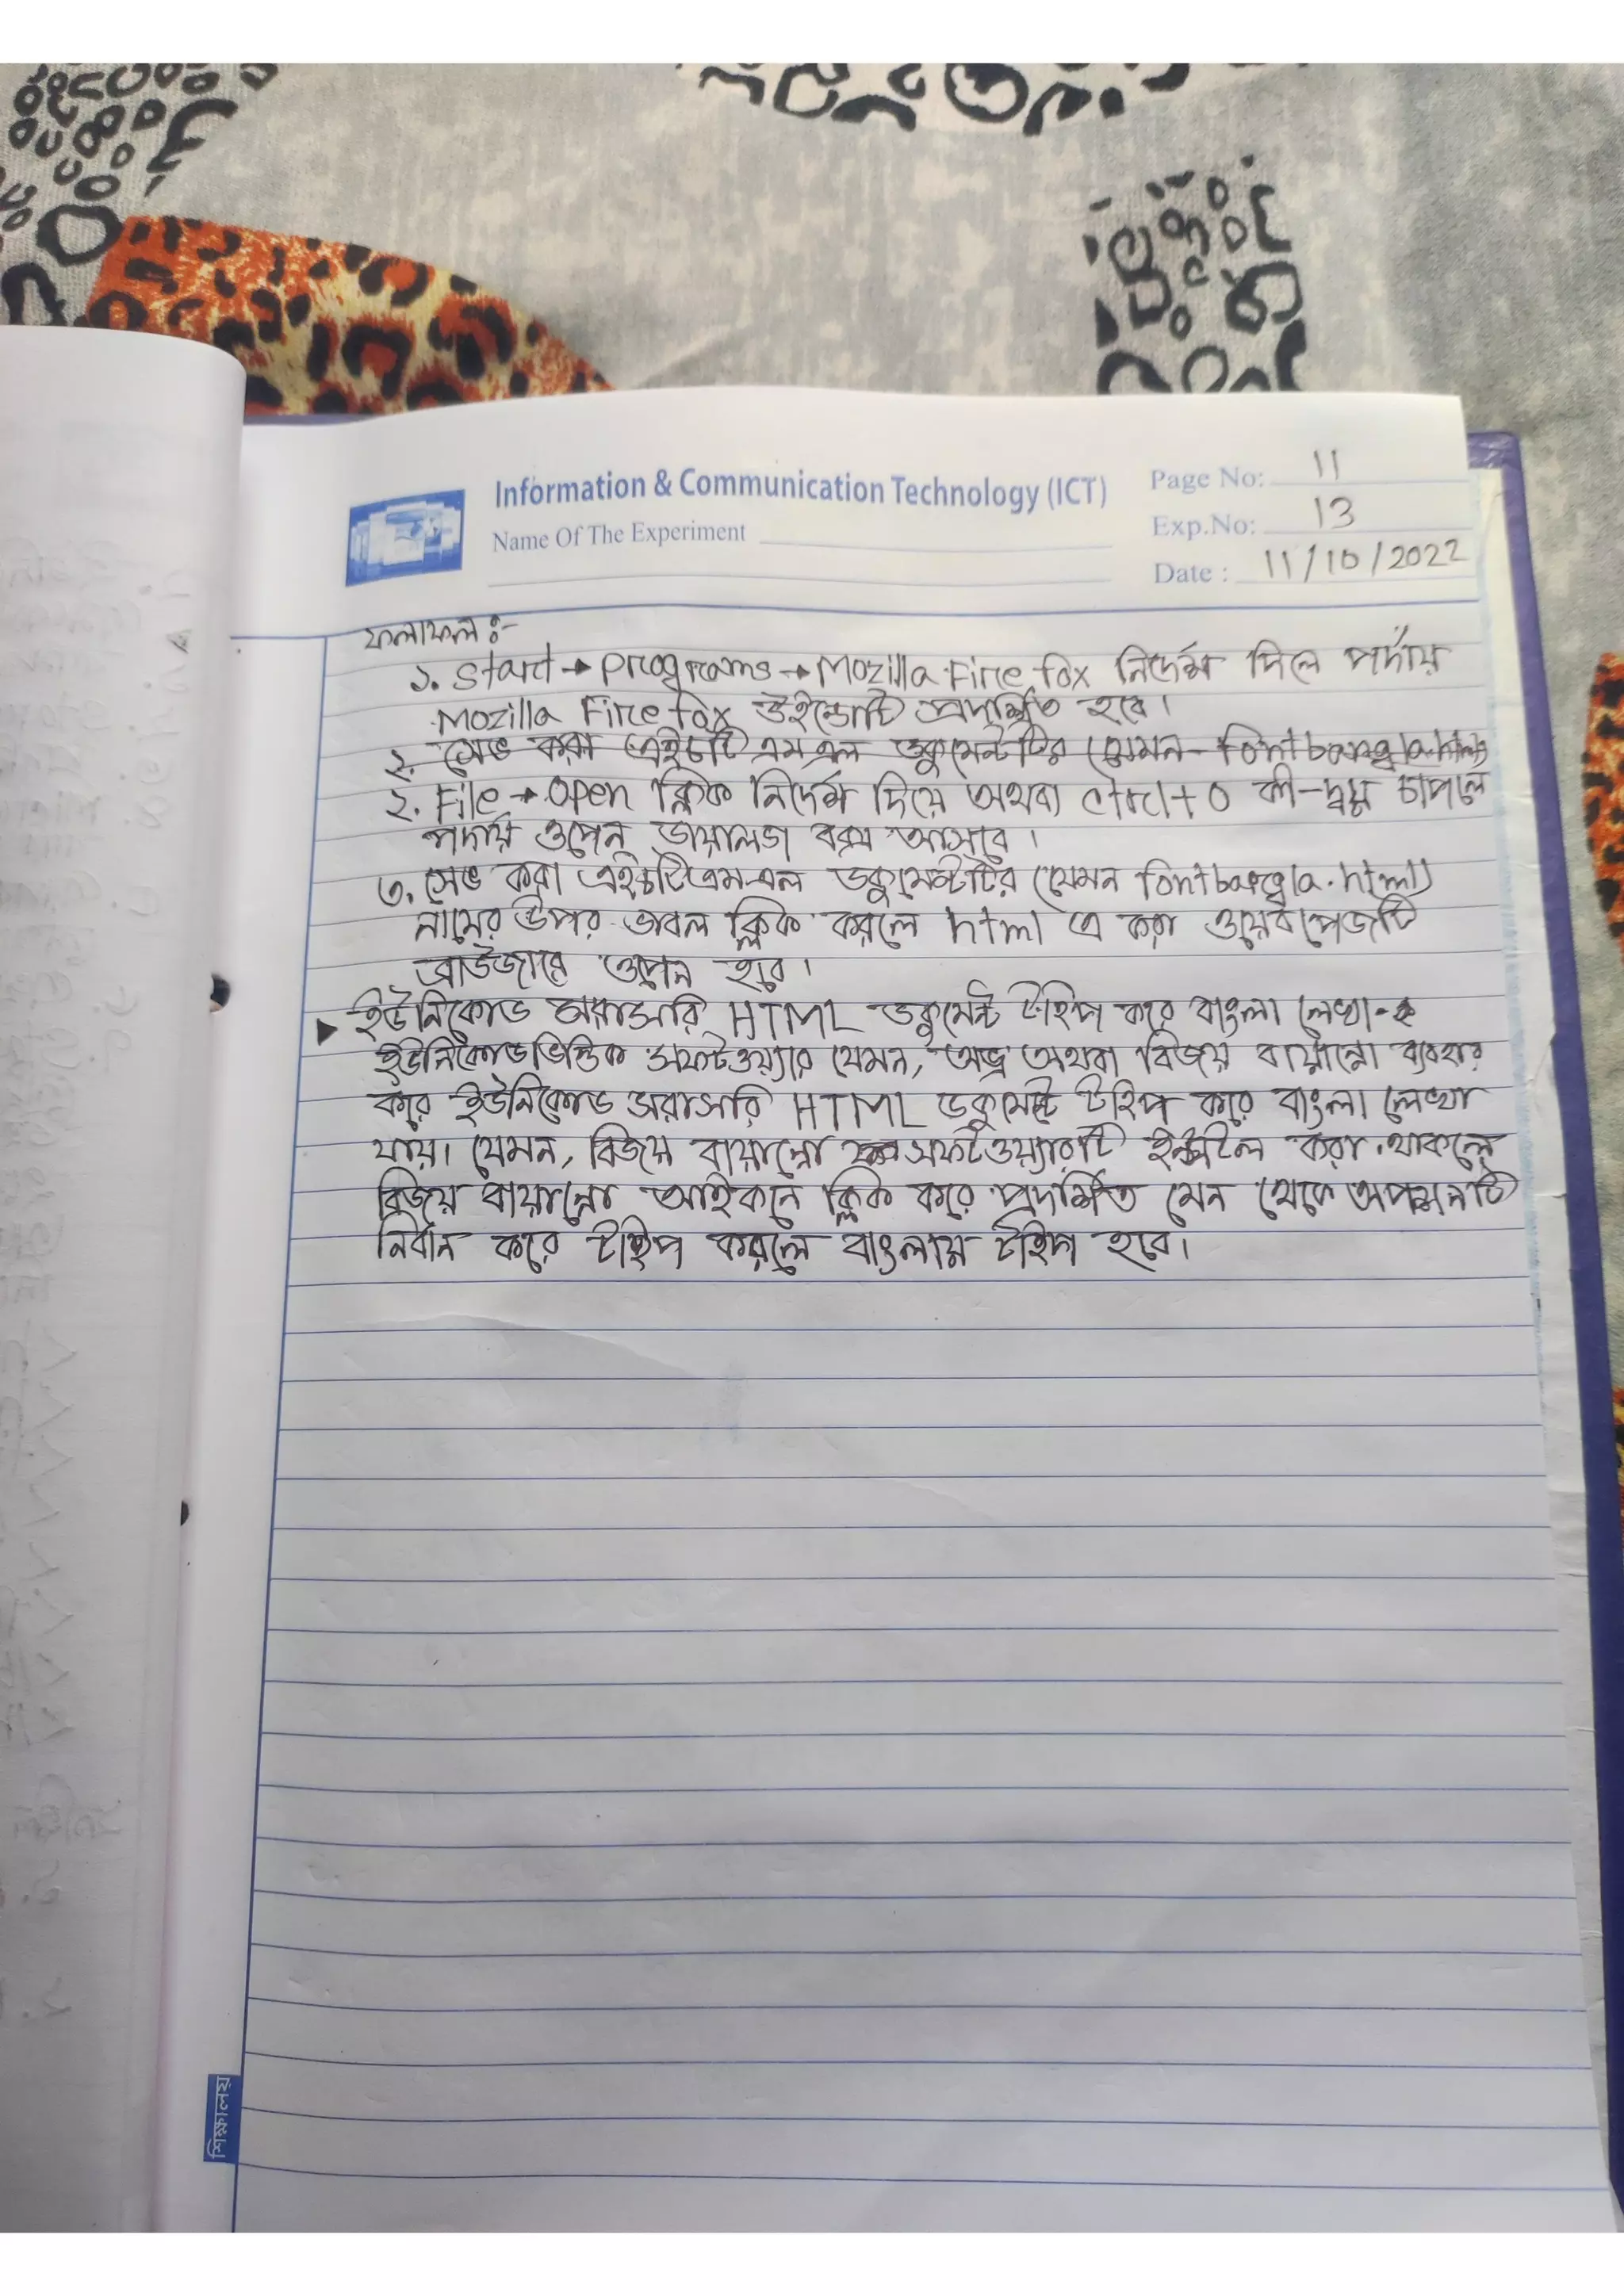 Information & Communication Technology (ICT)
Name Of The Experiment
Page No: 11
Exp.No: 13
Date : 11/10/2022
ফলাফল :-
১. Start → Programs → Mozilla Fire fox নির্দেশ দিলে পর্দায়
Mozilla Fire fox উইন্ডোটি প্রদর্শিত হবে।
২. সেভ করা এইচটিএমএল ডকুমেন্টটির (যেমন- fontbangla.html)
২. File → Open ক্লিক নির্দেশ দিয়ে অথবা ctrl+o কী-দ্বয় চাপলে
পর্দায় ওপেন ডায়ালগ বক্স আসবে।
৩. সেভ করা এইচটিএমএল ডকুমেন্টটির (যেমন fontbangla.html)
নামের উপর ডাবল ক্লিক করলে html এ করা ওয়েবপেজটি
ব্রাউজারে ওপেন হবে।
▶ ইউনিকোড সরাসরি HTML ডকুমেন্ট টাইপ করে বাংলা লেখা-
ইউনিকোডভিত্তিক সফটওয়্যার যেমন, অভ্র অথবা বিজয় বায়ান্নো ব্যবহার
করে ইউনিকোড সরাসরি HTML ডকুমেন্ট টাইপ করে বাংলা লেখা
যায়। যেমন, বিজয় বায়ান্নো সফটওয়্যারটি ইন্সটল করা থাকলে
বিজয় বায়ান্নো আইকনে ক্লিক করে প্রদর্শিত মেন থেকে অপশনটি
নির্বান করে টাইপ করলে বাংলায় টাইপ হবে।
শিক্ষালয়